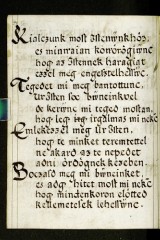 Kialczunk most Istenwnkhöz,
es mindnaian könörögiwnc
hog az Istennek haragiat
Tegedet mi meg bantottunc,
Ur Isten soc bwneinkuel
de kerwnc mi teged mostan,
hog leg irgalmas mi nekc
Emlekezzel meg Ur Isten,
hog te minket teremtettel
ne akard az te nepedet
adni ördögnek kezeben.
Boczasd meg mi bwneinket,
es adg hitet most mi nekc
hog mindenkoron elötted
kellemetesek lehesswnc.